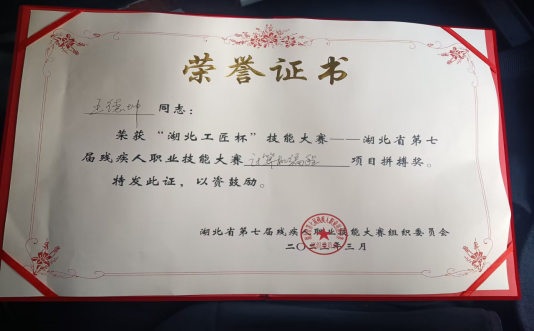 荣誉证书
王德坤 同志：
荣获“湖北工匠杯”技能大赛——湖北省第七
届残疾人职业技能大赛 计算机编程 项目拼搏奖。
特发此证，以资鼓励。
湖北省第七届残疾人职业技能大赛组织委员会
二〇二三年三月